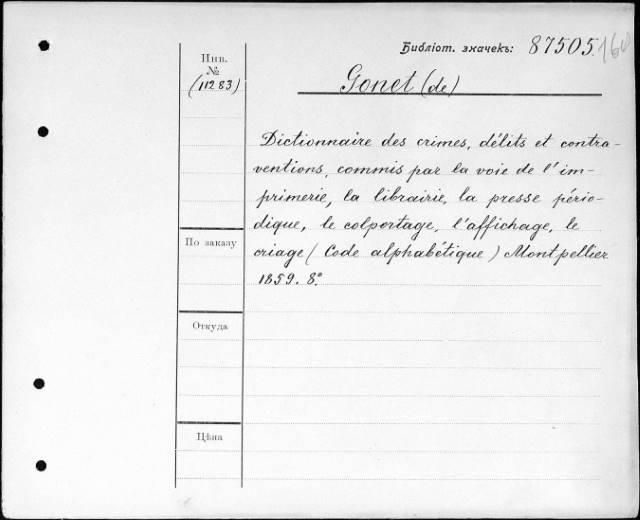 Библіот. значекъ: 87505.
Инв.
№
(11283)
Gonet (de)
Dictionnaire des crimes, délits et contra-
ventions, commis par la voie de l'im-
primerie, la librairie, la presse pério-
dique, le colportage, l'affichage, le
criage (Code alphabétique) Montpellier
1859. 8°
По заказу
Откуда
Цѣна